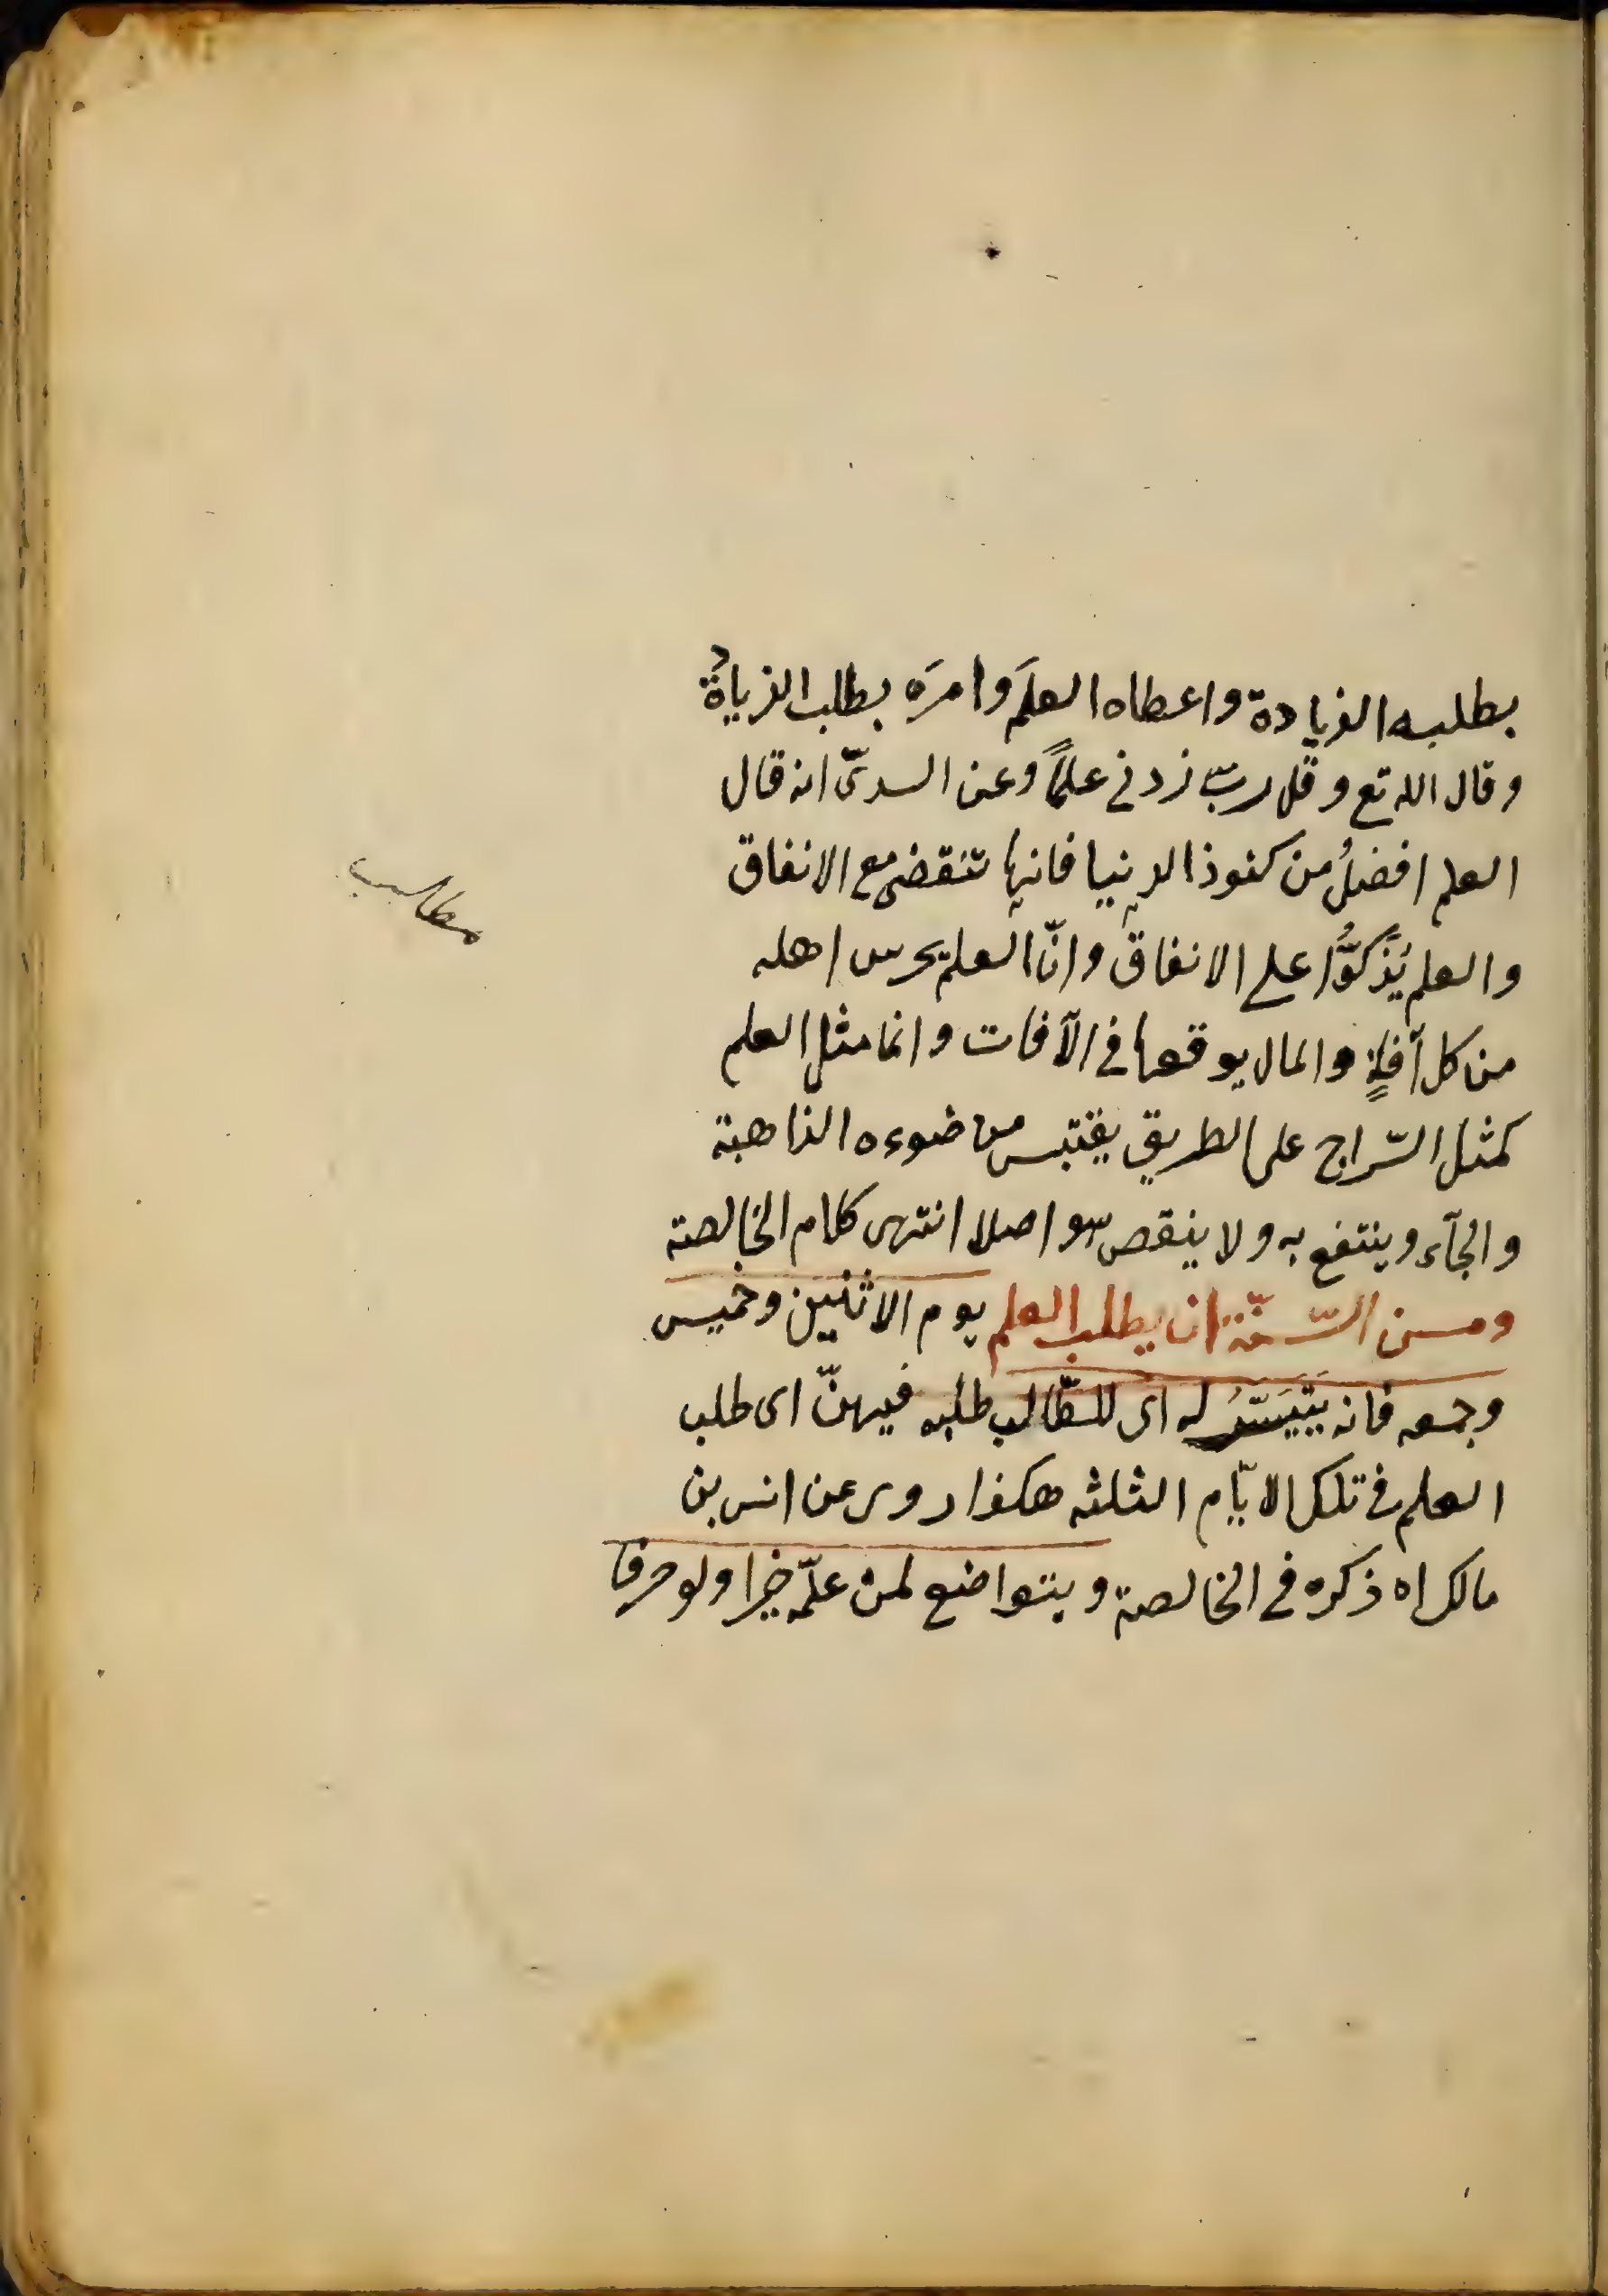 بطلبه الزيادة واعطاه العلمَ وامرَه بطلب الزيادة
وقال الله تع وقل ربّ زدنى علمًا وعن السدىّ انه قال
العلم افضلُ من كنوز الدنيا فانها تنقضى مع الانفاق
والعلم يُذَكوُّا على الانفاق وانّ العلم يحرس اهله
من كل آفةٍ والمال يوقعها فى الآفات وانما مثل العلم
كمثل السّراج على الطريق يقتبس من ضوءه الذاهبة
والجآء وينتفع به ولا ينقص هو اصلا انتهى كلام الخالصة
ومن السّنّة ان يطلب العلم يوم الاثنين وخميس
وجمعه فانه يَتَيَسَّرُ له اى للطّالب طلبه فيهنّ اى طلب
العلم فى تلك الايّام الثلثه هكذا روى عن انس بن
مالك اه ذكره فى الخالصة ويتواضع لمن علّمه خيرا ولو حرفا
مطالب